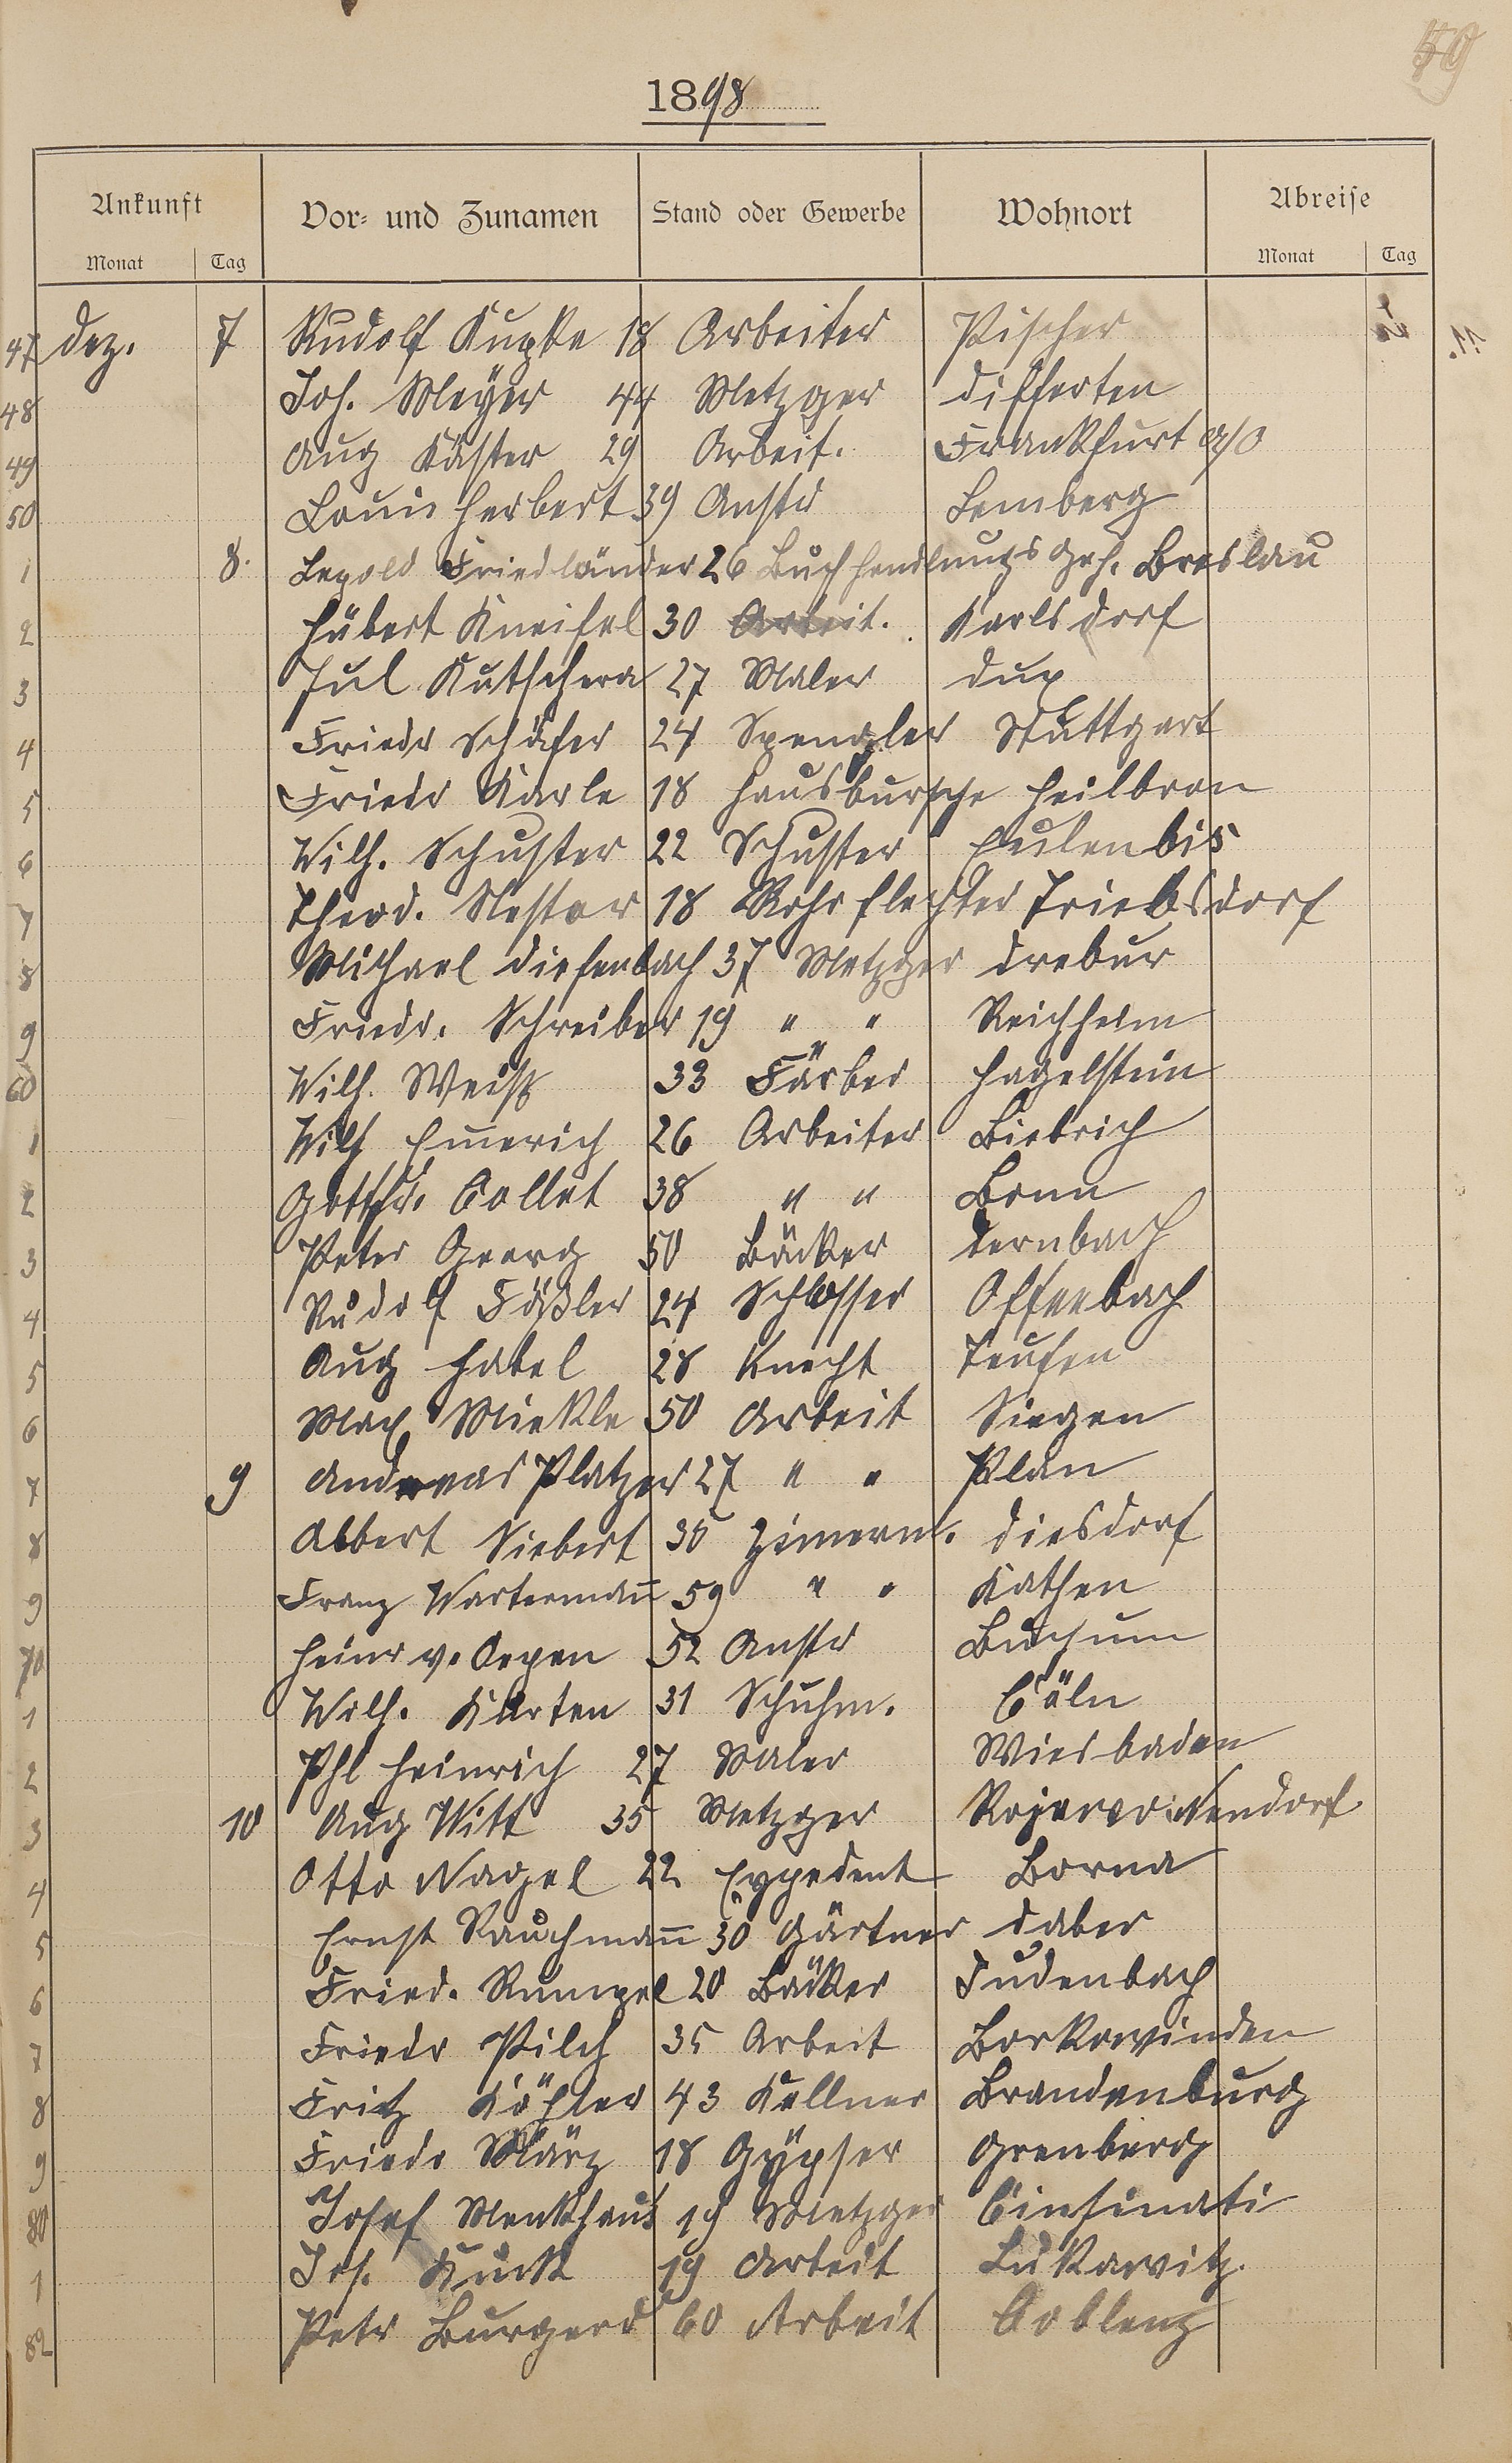 59
1898
Ankunft Vor- und Zunamen Stand oder Gewerbe Wohnort Abreise
Monat Tag Monat Tag
47 Dez. 7 Rudolf Kupke 18 Arbeiter Pischer
48 Joh. Meyer 44 Metzger Differten
49 Aug Kaster 29 Arbeit. Frankfurt a/O
50 Louis Herbert 39 Anstr Lemberg
1 8. Lepold Friedländer 26 Buchhandlungs Geh. Breslau
2 Hubert Kneifel 30 Arbeit. Karlsdorf
3 Jul Kutschera 27 Maler Dux
4 Friedr Schäfer 24 Spengler Stuttgart
5 Friedr Karle 18 Hausbursche Heilbron
6 Wilh. Schuster 22 Schuster Eulenbis
7 Theod. Nestor 18 Rohrflechter Triebsdorf
8 Michael Diefenbach 37 Metzger Drebur
9 Friedr. Schreiber 19 " " Reichheim
60 Wilh. Weiß 33 Färber Hagelstein
1 Wilh Emerich 26 Arbeiter Biebrich
2 Gottfr. Collet 38 " " Bonn
3 Peter Georg 50 Bäcker Dernbach
4 Rudolf Fößler 24 Schlosser Offenbach
5 Aug Habel 28 Knecht Teufen
6 Max Miekle 50 Arbeit Siegen
7 9 Andreas Platzer 27 " " Plan
8 Albert Siebert 35 Zimerm. Diesdorf
9 Franz Wartermann 59 " " Kathen
70 Heinr v. Oepen 52 Anstr Buchum
1 Wilh. Karten 31 Schuhm. Cöln
2 Phl Heinrich 27 Maler Wiesbaden
3 10 Aug Witt 35 Metzger Nendorf
4 Otto Nagel 22 Expedent Borna
5 Ernst Rauchmann 30 Gärtner Daber
6 Fried. Rumpel 20 Bäcker Judenbach
7 Friedr Pilch 35 Arbeit Borkowinden
8 Fritz Köhler 43 Kellner Brandenburg
9 Friedr März 18 Gypser Grenberg
80 Josef Menkhaus 19 Metzger Cinsinati
1 Jos. Kuck 19 Arbeit Lukawitz.
82 Petr Burgard 60 Arbeit Coblenz